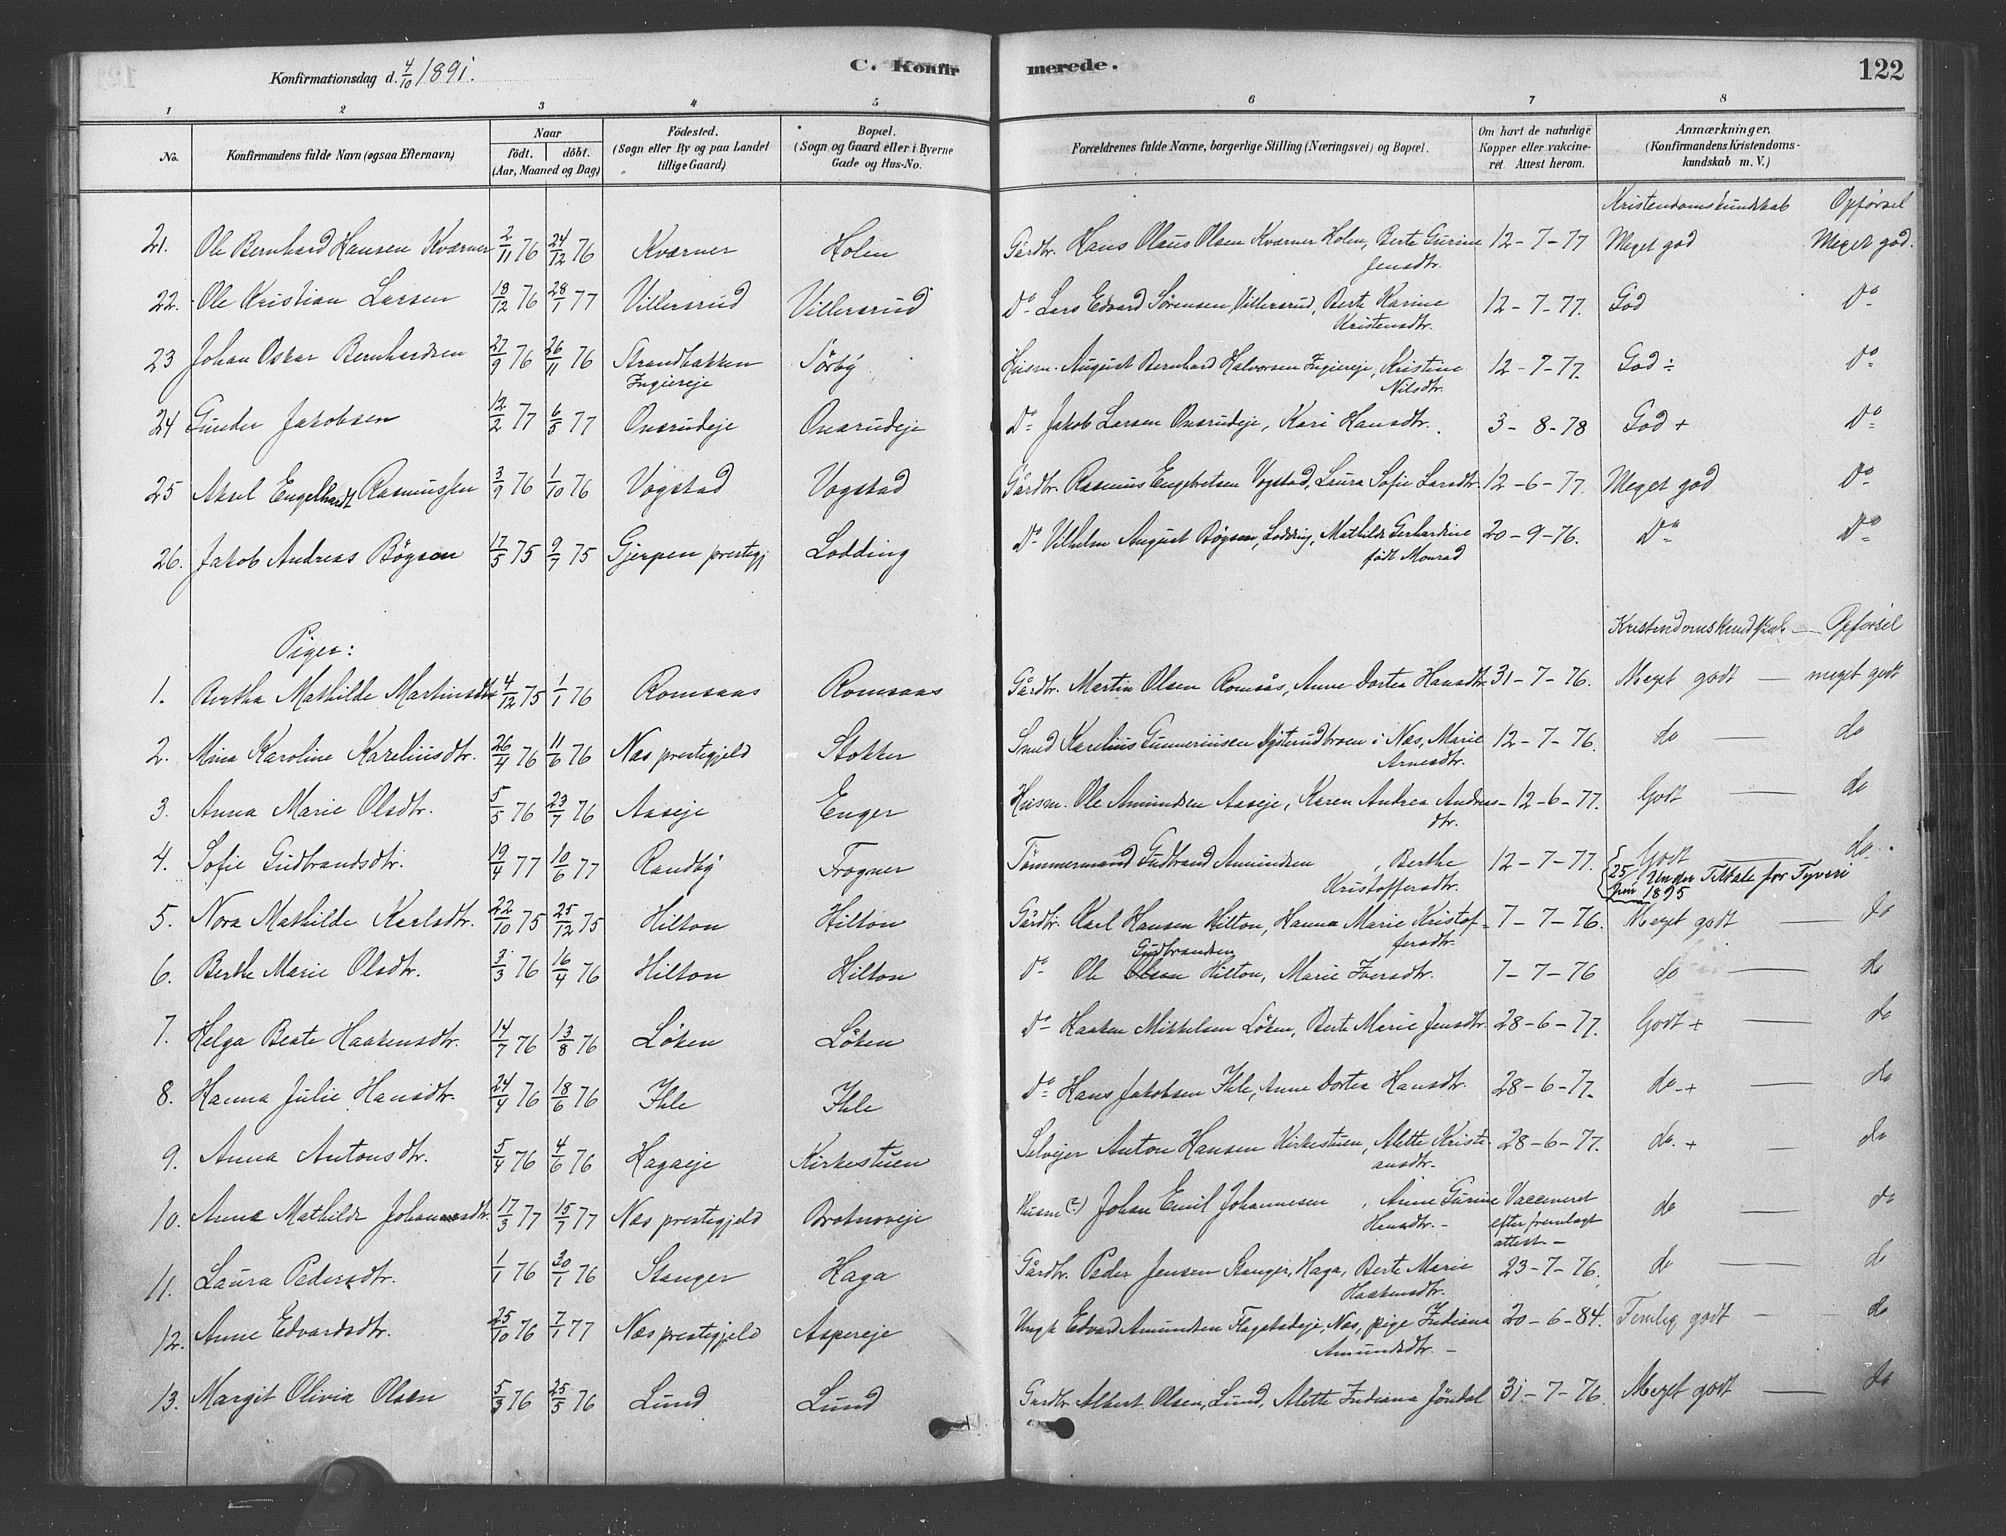 Konfirmationsdag d. 4/10 1891.
C. Konfirmerede.
122
1 2 3 4 5 6 7 8
No. Konfirmandens fulde Navn (ogsaa Efternavn) Naar født. døbt. (Aar, Maaned og Dag) Födested. (Sogn eller By og paa Landet tillige Gaard) Bopæl. (Sogn og Gaard eller i Byerne Gade og Hus-No. Forældrenes fulde Navne, borgerlige Stilling (Næringsvei) og Bopæl. Om havt de naturlige Kopper eller vakcineret. Attest herom. Anmærkninger. (Konfirmandens Kristendomskundskab m. V.)
Kristendomskundskab Opførsel
21. Ole Bernhard Hansen Kværner 2/11 76 24/12 76 Kværner Holen Gårdbr. Hans Olaus Olsen Kværner Holen, Berte Gurine Jensdtr. 12-7-77 Meget god Meget god.
22. Ole Kristian Larsen 18/12 76 28/1 77 Villersrud Villersrud Do Lars Edvard Sørensen, Villersrud, Berte Karine Kristensdtr. 12-7-77. God Do
23 Johan Oskar Bernhardsen 27/9 76 26/11 76 Strandbakken Ingiereje Sørby Husm. August Bernhard Halvorsen Ingiereje, Kristine Nilsdtr. 12-7-77. God ÷ Do
24 Gunder Jakobsen 12/2 77 6/5 77 Onsrudeje Onsrudeje Do Jakob Larsen Onsrudeje, Kari Hansdtr. 3-8-78 God + Do
25 Aksel Engelhardt Rasmussen 3/9 76 1/10 76 Vogstad Vogstad Gårdbr. Rasmus Engebretsen Vogstad, Laura Sofie Larsdtr. 12-6-77. Meget god Do
26. Jakob Andreas Bøgsen 17/5 75 9/7 75 Gjerpen prestegj Lodding Do Vilhelm August Bøgsen, Lodding, Mathilde Gerhardine født Monrad 20-9-76. Do Do
Piger:
Kristendomskundskab — Opførsel
1. Bertha Mathilde Martinsdtr 4/12 75 1/1 76 Romsaas Romsaas Gårdbr. Martin Olsen Romsås, Anne Dortea Hansdtr. 31-7-76. Meget godt — meget godt
2. Mina Karoline Kareliusdtr. 26/4 76 11/6 76 Næs prestegjeld Stokker Smed Karelius Gunneriusen Dysterudbroen i Næs, Marie Arnesdtr. 12-7-76. do — do
3. Anna Marie Olsdtr. 5/5 76 23/7 76 Aaseje Enger Husm. Ole Amundsen Aaseje, Karen Andrea Andreas-dtr. 12-6-77. Godt — do
4. Sofie Gudbrandsdtr. 19/4 77 10/6 77 Randby Frogner Tømmermand Gudbrand Amundsen, Berthe Kristoffersdtr. 12-7-77. Godt do.
25 Juni 1895 Under Tiltale for Tyveri
5. Nora Mathilde Karlsdtr. 22/10 75 25/12 75 Hilton Hilton Gårdbr. Karl Hansen Hilton, Hanna Marie Kristoffersdtr. 7-7-76. Meget godt — do
6. Berthe Marie Olsdtr. 3/3 76 16/4 76 Hilton Hilton Do Ole Gudbrandsen Hilton, Marie Iversdtr. 7-7-76 do — do
7. Helga Beate Haakensdtr. 14/7 76 13/8 76 Løken Løken Do Haaken Mikkelsen Løken, Berte Marie Jensdtr. 28-6-77. Godt + — do
8. Hanna Julie Hansdtr. 24/4 76 18/6 76 Ihle Ihle Do Hans Jakobsen Ihle, Anne Dortea Hansdtr. 28-6-77. do + — do
9. Anna Antonsdtr. 5/4 76 4/6 76 Hagaeje Kirkestuen Selvejer Anton Hansen Kirkestuen, Alette Kristiansdtr. 28-6-77. do. + — do
10. Anna Mathilde Johannesdtr. 17/3 77 15/7 77 Næs prestegjeld Brotnoveje Husm (?) Johan Emil Johannesen, Anne Gurine Hansdtr. Vaccineret efter fremlagt attest. — do — do
11. Laura Pedersdtr. 1/1 76 30/1 76 Stanger Haga Gårdbr. Peder Jensen Stanger, Haga, Berte Marie Haakensdtr. 23-7-76. do — do
12. Anne Edvardsdtr. 25/10 76 7/1 77 Næs prestegjeld Aspereje Ungk Edvard Amundsen Flagstadeje, Næs, pige Indiana Amundsdtr. — 20-6-84. Temlig godt — do
13. Margit Olivia Olsen 5/3 76 25/5 76 Lund Lund Gardbr. Albert Olsen, Lund, Alette Indiana Jøndal 31-7-76. Meget godt — do